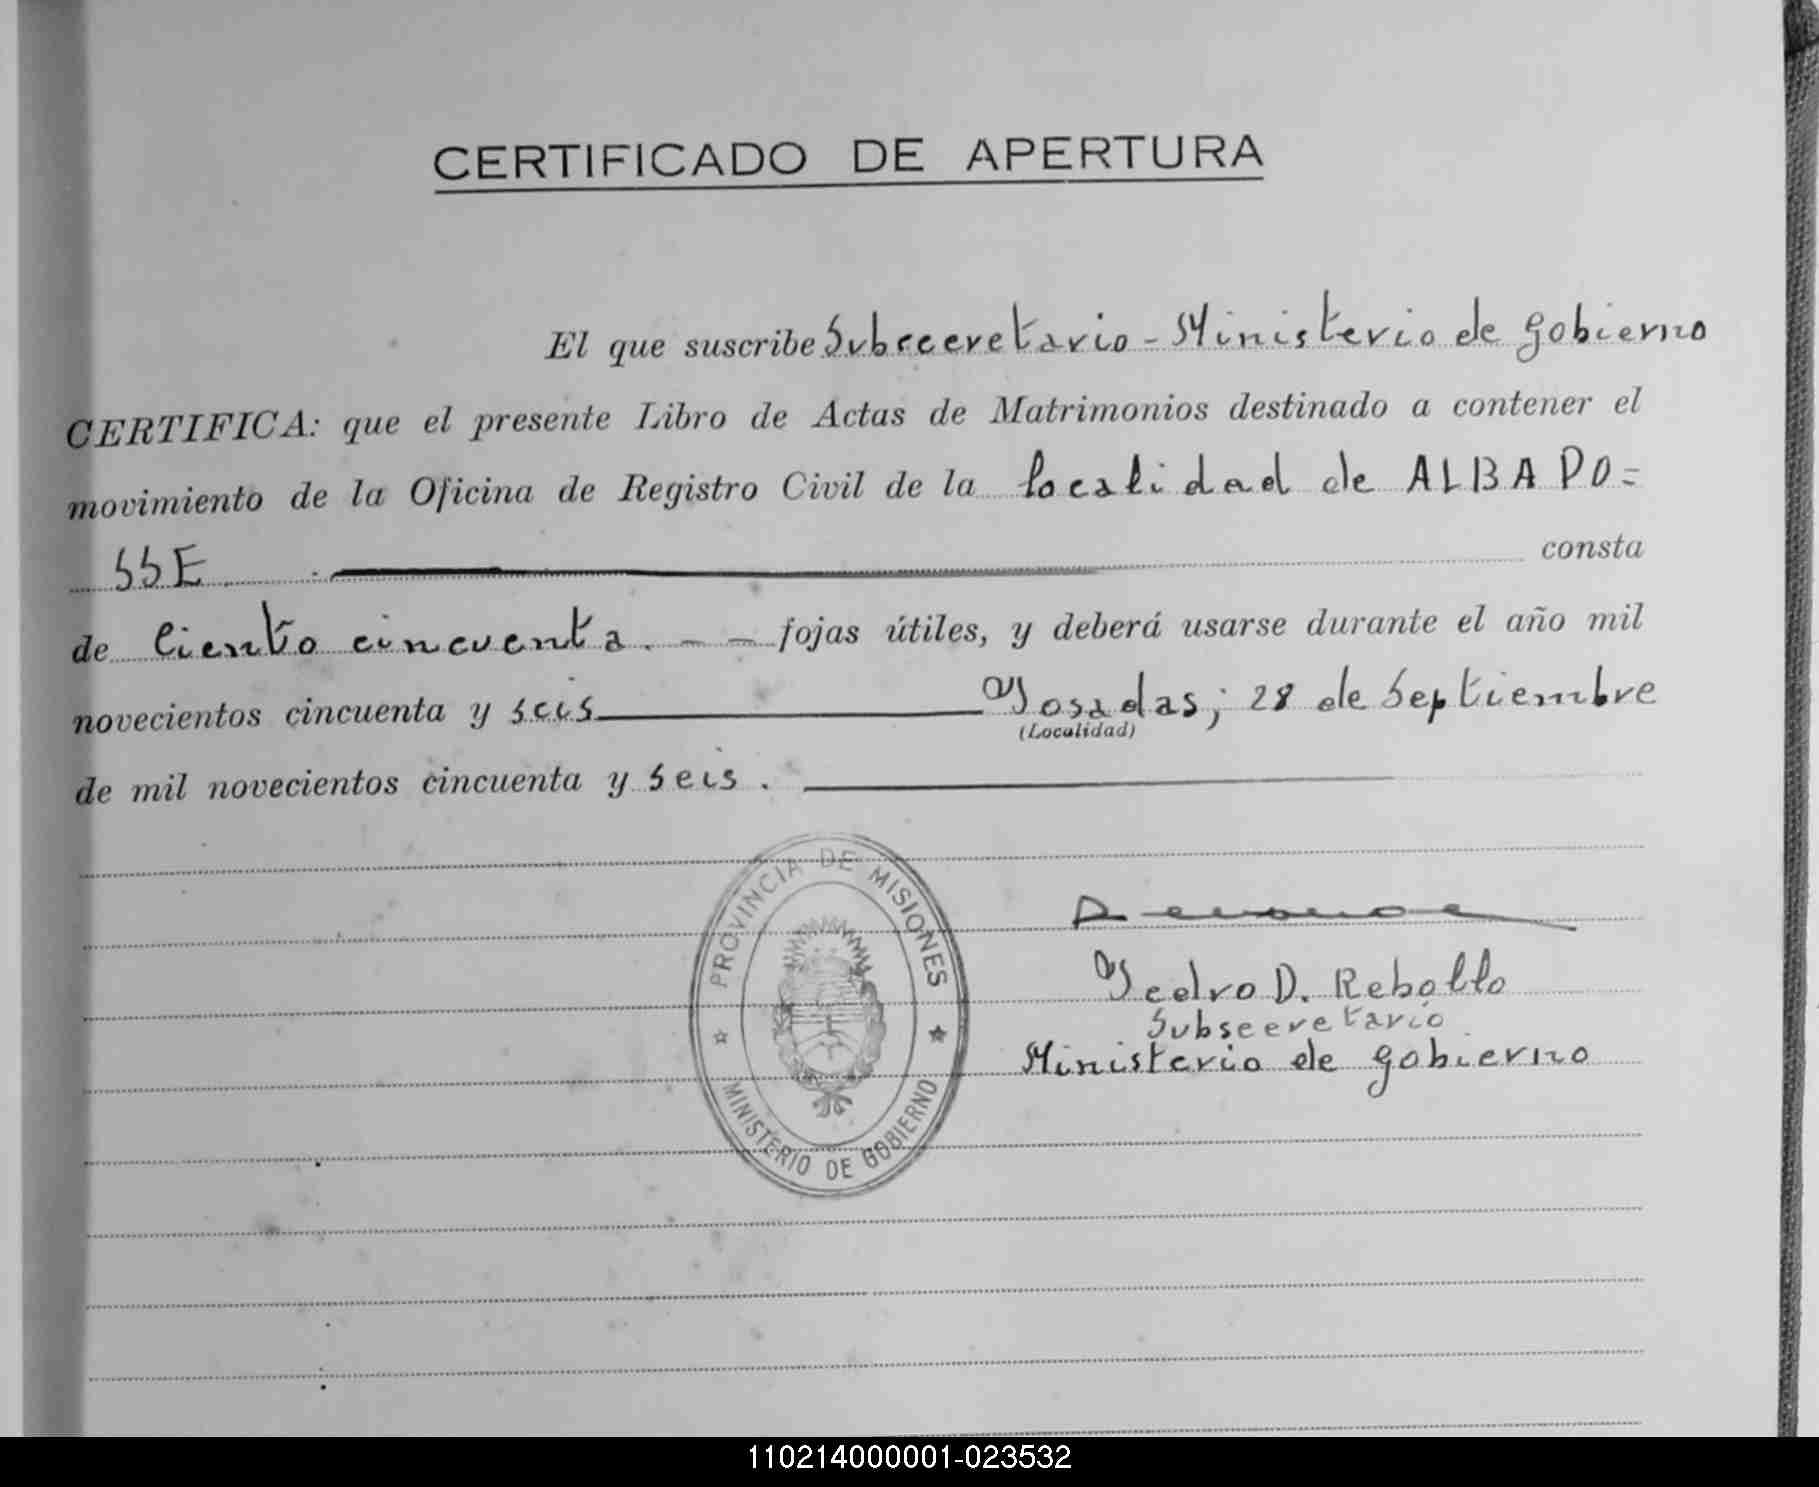 CERTIFICADO DE APERTURA
El que suscribe Subsecretario - Ministerio de Gobierno
CERTIFICA: que el presente Libro de Actas de Matrimonios destinado a contener el
movimiento de la Oficina de Registro Civil de la localidad de ALBA PO=
SSE consta
de Ciento cincuenta. — — fojas útiles, y deberá usarse durante el año mil
novecientos cincuenta y seis Posadas; 28 de Septiembre
(Localidad)
de mil novecientos cincuenta y seis.
PROVINCIA DE MISIONES
MINISTERIO DE GOBIERNO
Pedro D. Rebollo
Subsecretario
Ministerio de Gobierno
110214000001-023532